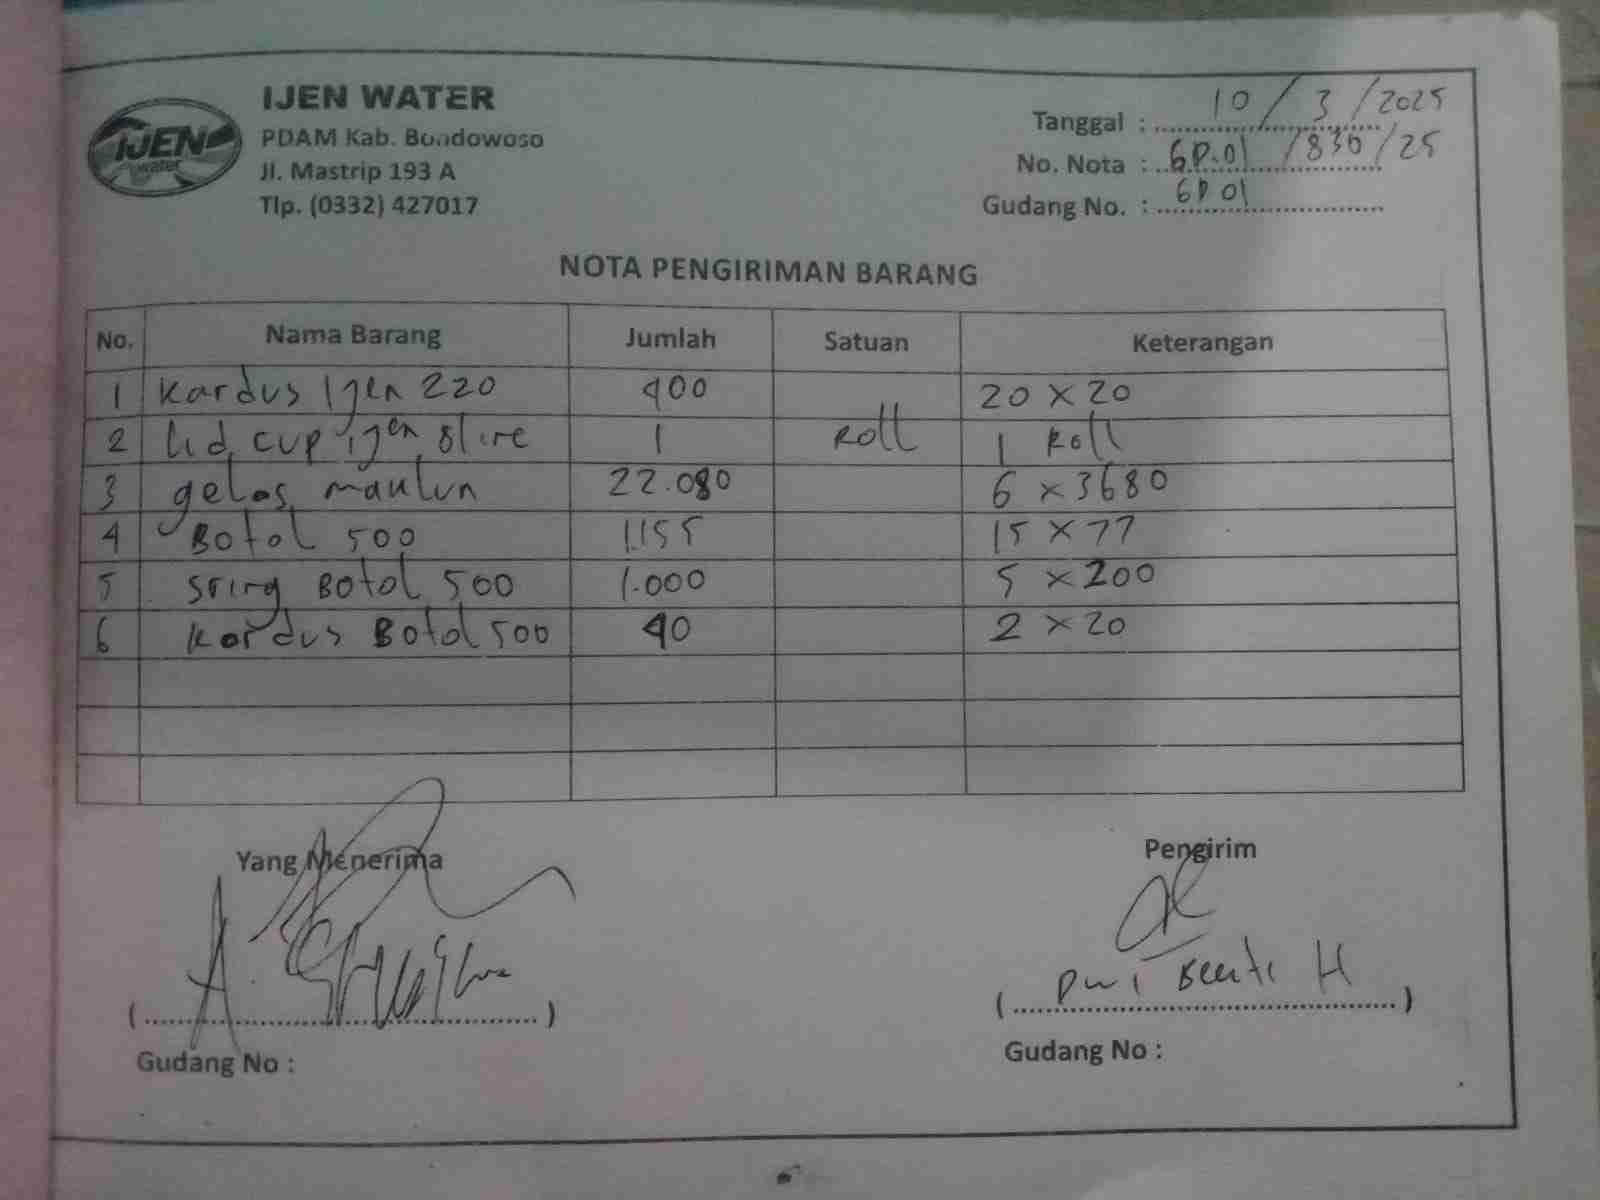 IJEN WATER
PDAM Kab. Bondowoso
Jl. Mastrip 193 A
Tlp. (0332) 427017
IJEN
water
Tanggal : 10 / 3 / 2025
No. Nota : GD.01 / 830 / 25
Gudang No. : GD 01
NOTA PENGIRIMAN BARANG
No. Nama Barang Jumlah Satuan Keterangan
1 Kardus Ijen 220 400 20 x 20
2 Lid cup ijen 1 Roll 1 Roll
3 gelas 22.080 6 x 3680
4 Botol 500 1.155 15 x 77
5 Sring Botol 500 1.000 5 x 200
6 Kardus Botol 500 40 2 x 20
Yang Menerima Pengirim
A.
(....................) (Dwi H)
Gudang No : Gudang No :